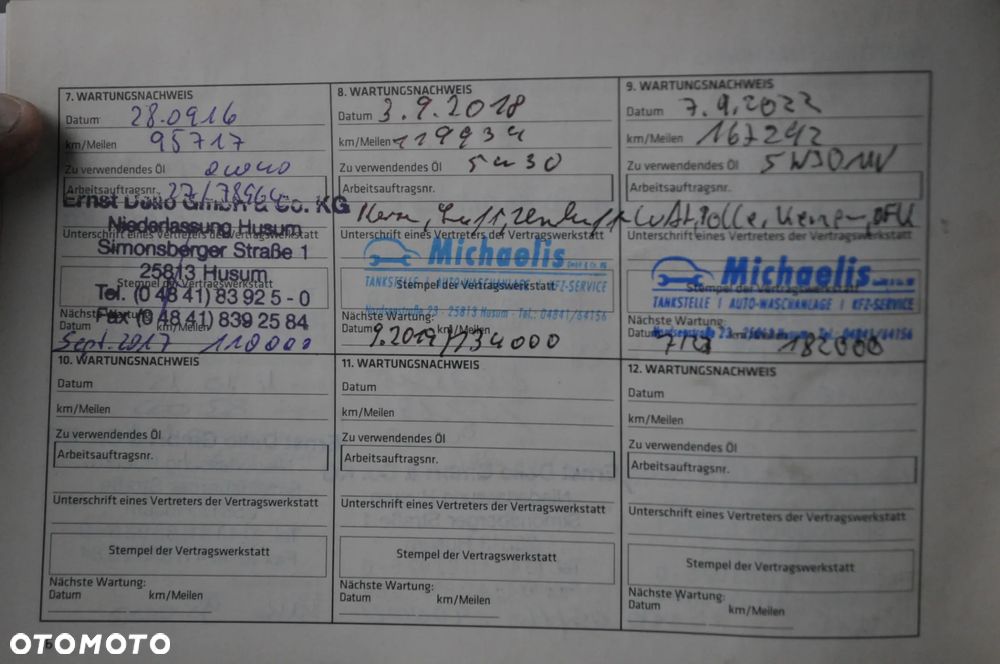 7. WARTUNGSNACHWEIS
Datum 28.09.16
km/Meilen 95717
Zu verwendendes Öl
Arbeitsauftragsnr. 27/78964
Ernst Dello GmbH & Co. KG
Niederlassung Husum
Unterschrift eines Vertreters der Vertragswerkstatt
Simonsberger Straße 1
25813 Husum
Stempel der Vertragswerkstatt
Tel. (0 48 41) 83 92 5 - 0
Fax (0 48 41) 839 25 84
Nächste Wartung:
Datum km/Meilen
Sept. 2017 110000
8. WARTUNGSNACHWEIS
Datum 3.9.2018
km/Meilen 119934
Zu verwendendes Öl 5w30
Arbeitsauftragsnr.
Unterschrift eines Vertreters der Vertragswerkstatt
Michaelis GmbH & Co. KG
TANKSTELLE | AUTO-WASCHANLAGE | KFZ-SERVICE
Stempel der Vertragswerkstatt
23 - 25813 Husum - Tel.: 04841/64156
Nächste Wartung:
Datum 9.2019 km/Meilen 134000
9. WARTUNGSNACHWEIS
Datum 7.9.2022
km/Meilen 167242
Zu verwendendes Öl 5W30
Arbeitsauftragsnr.
Unterschrift eines Vertreters der Vertragswerkstatt
Michaelis
Stempel der Vertragswerkstatt
TANKSTELLE | AUTO-WASCHANLAGE | KFZ-SERVICE
23 - 25813 Husum - Tel.: 04841/64156
Nächste Wartung:
Datum km/Meilen 182000
10. WARTUNGSNACHWEIS
Datum
km/Meilen
Zu verwendendes Öl
Arbeitsauftragsnr.
Unterschrift eines Vertreters der Vertragswerkstatt
Stempel der Vertragswerkstatt
Nächste Wartung:
Datum km/Meilen
11. WARTUNGSNACHWEIS
Datum
km/Meilen
Zu verwendendes Öl
Arbeitsauftragsnr.
Unterschrift eines Vertreters der Vertragswerkstatt
Stempel der Vertragswerkstatt
Nächste Wartung:
Datum km/Meilen
12. WARTUNGSNACHWEIS
Datum
km/Meilen
Zu verwendendes Öl
Arbeitsauftragsnr.
Unterschrift eines Vertreters der Vertragswerkstatt
Stempel der Vertragswerkstatt
Nächste Wartung:
Datum km/Meilen
OTOMOTO